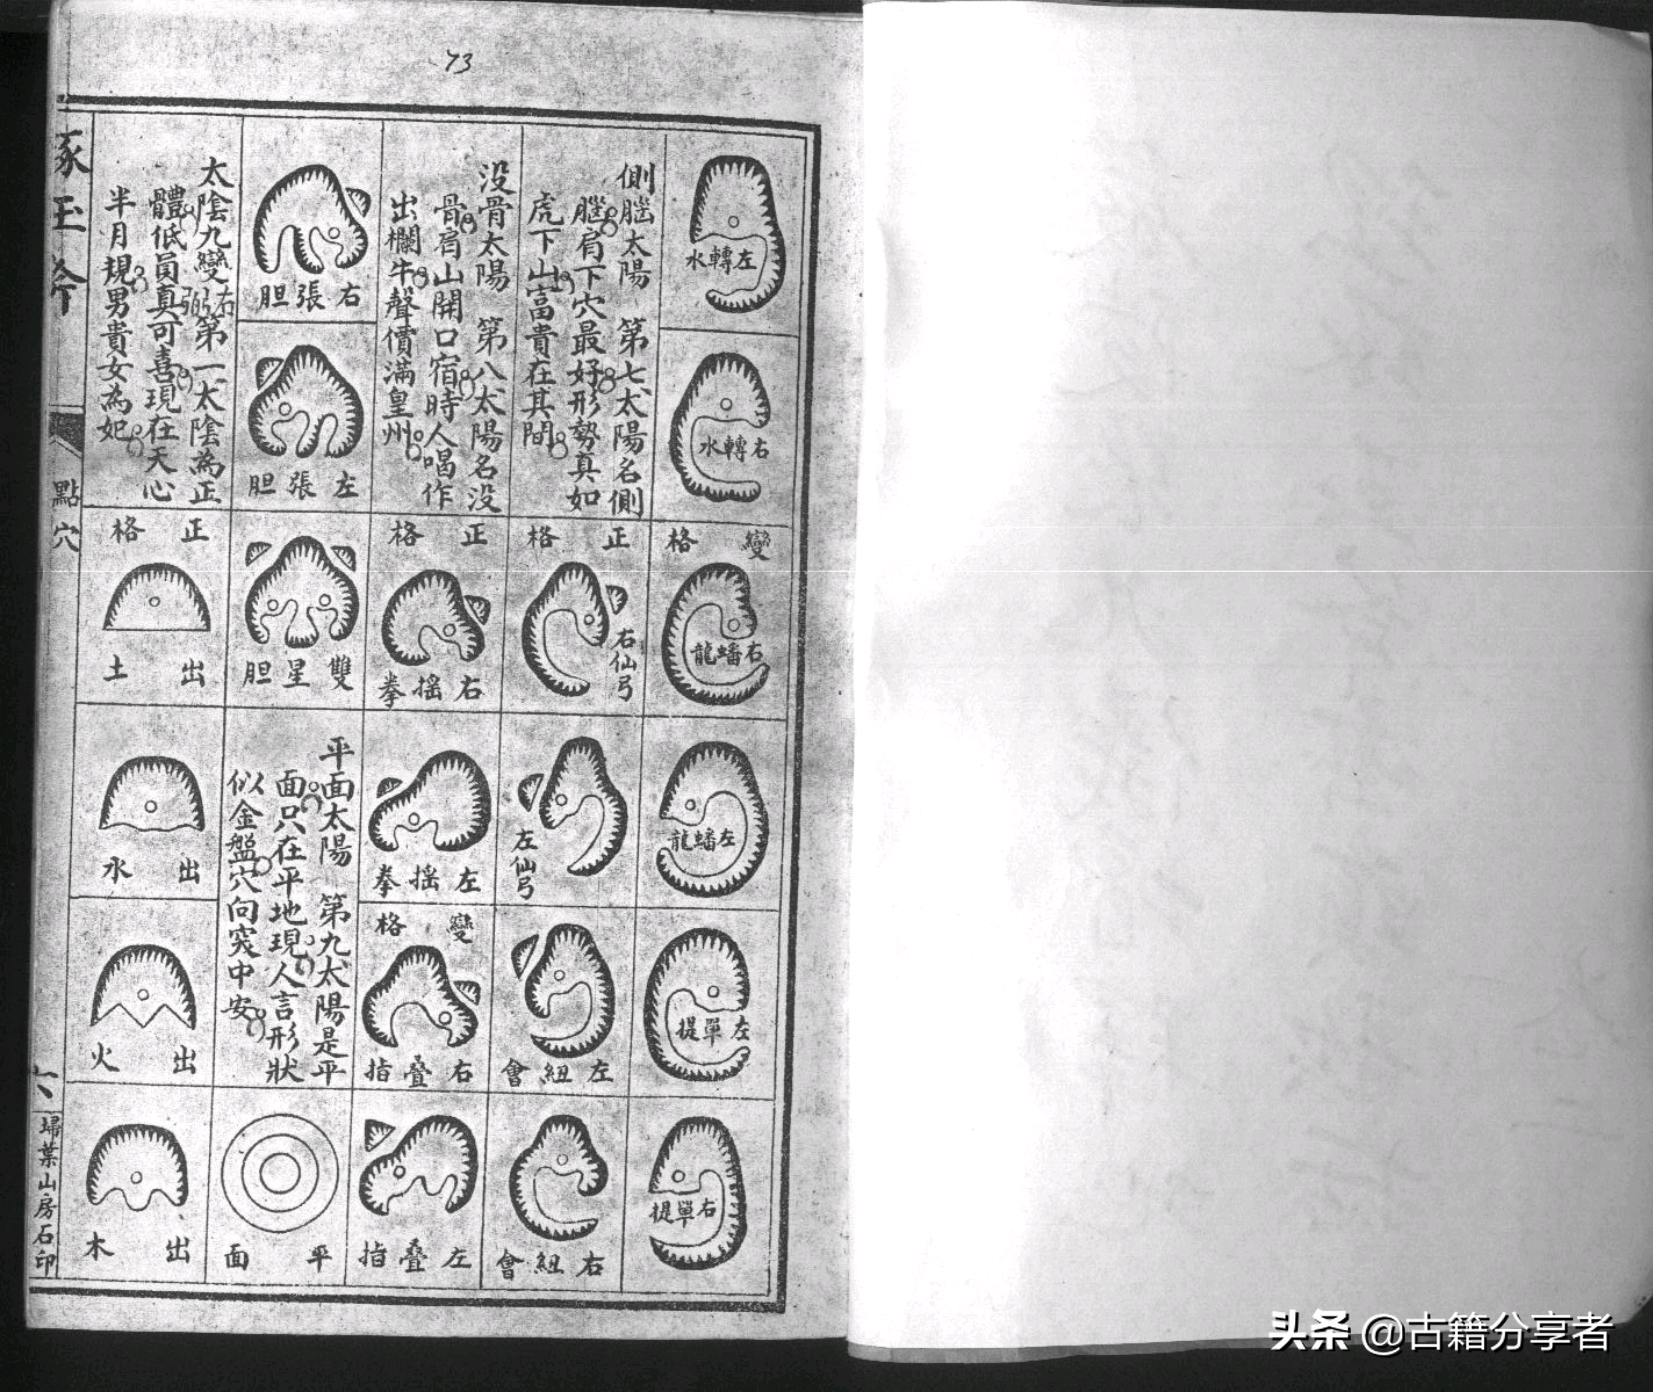 73
左轉水
右轉水
變格
右蟠龍
左蟠龍
左單提
右單提
側腦太陽 第七太陽名側
腦肩下穴最好形勢真如
虎下山富貴在其間
正格
右仙弓
左仙弓
左紐會
右紐會
没骨太陽 第八太陽名没
骨肩山開口宿時人喝作
出欄牛聲價满皇州
正格
右摇拳
左摇拳
變格
右叠指
左叠指
右張胆
左張胆
雙星胆
平面太陽 第九太陽是平
面只在平地現人言形狀
似金盤穴向窝中安
平面
太陰九變 第一太陰為正
體低員真可喜現在天心
半月規男貴女為妃
正格
出土
出水
出火
出木
琢玉斧
點穴
六
埽葉山房石印
头条 @古籍分享者